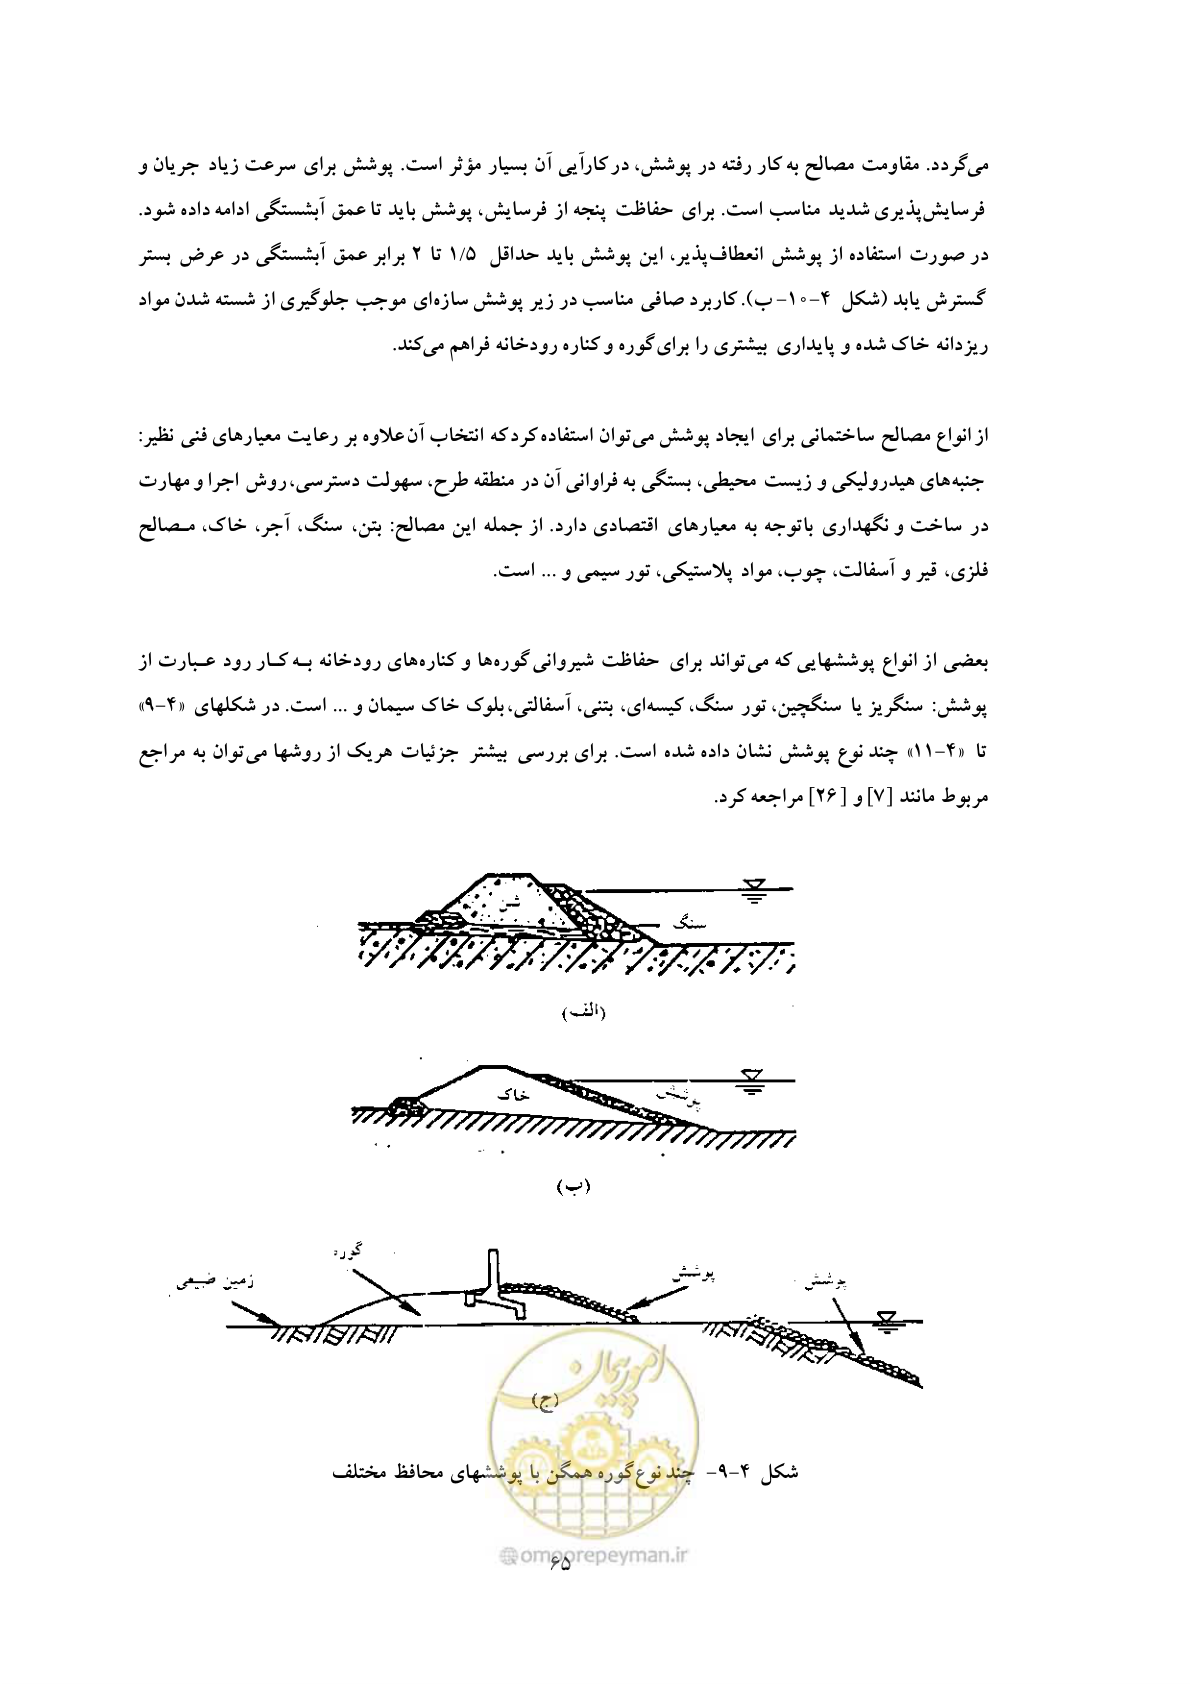 می‌گردد. مقاومت مصالح به کار رفته در پوشش، در کارآیی آن بسیار مؤثر است. پوشش برای سرعت زیاد جریان و
فرسایش‌پذیری شدید مناسب است. برای حفاظت پنجه از فرسایش، پوشش باید تا عمق آبشستگی ادامه داده شود.
در صورت استفاده از پوشش انعطاف‌پذیر، این پوشش باید حداقل ۱/۵ تا ۲ برابر عمق آبشستگی در عرض بستر
گسترش یابد (شکل ۴-۱۰- ب). کاربرد صافی مناسب در زیر پوشش سازه‌ای موجب جلوگیری از شسته شدن مواد
ریزدانه خاک شده و پایداری بیشتری را برای گوره و کناره رودخانه فراهم می‌کند.
از انواع مصالح ساختمانی برای ایجاد پوشش می‌توان استفاده کرد که انتخاب آن علاوه بر رعایت معیارهای فنی نظیر:
جنبه‌های هیدرولیکی و زیست محیطی، بستگی به فراوانی آن در منطقه طرح، سهولت دسترسی، روش اجرا و مهارت
در ساخت و نگهداری باتوجه به معیارهای اقتصادی دارد. از جمله این مصالح: بتن، سنگ، آجر، خاک، مـصالح
فلزی، قیر و آسفالت، چوب، مواد پلاستیکی، تور سیمی و ... است.
بعضی از انواع پوششهایی که می‌تواند برای حفاظت شیروانی گوره‌ها و کناره‌های رودخانه بـه کـار رود عـبارت از
پوشش: سنگریز یا سنگچین، تور سنگ، کیسه‌ای، بتنی، آسفالتی، بلوک خاک سیمان و ... است. در شکلهای «۴-۹»
تا «۴-۱۱» چند نوع پوشش نشان داده شده است. برای بررسی بیشتر جزئیات هریک از روشها می‌توان به مراجع
مربوط مانند [۷] و [۲۶] مراجعه کرد.
شن
سنگ
(الف)
خاک
پوشش
(ب)
گوره
زمین طبیعی
پوشش
پوشش
امور پیمان
(ج)
شکل ۴-۹- چند نوع گوره همگن با پوششهای محافظ مختلف
@omoorepeyman.ir
۶۵